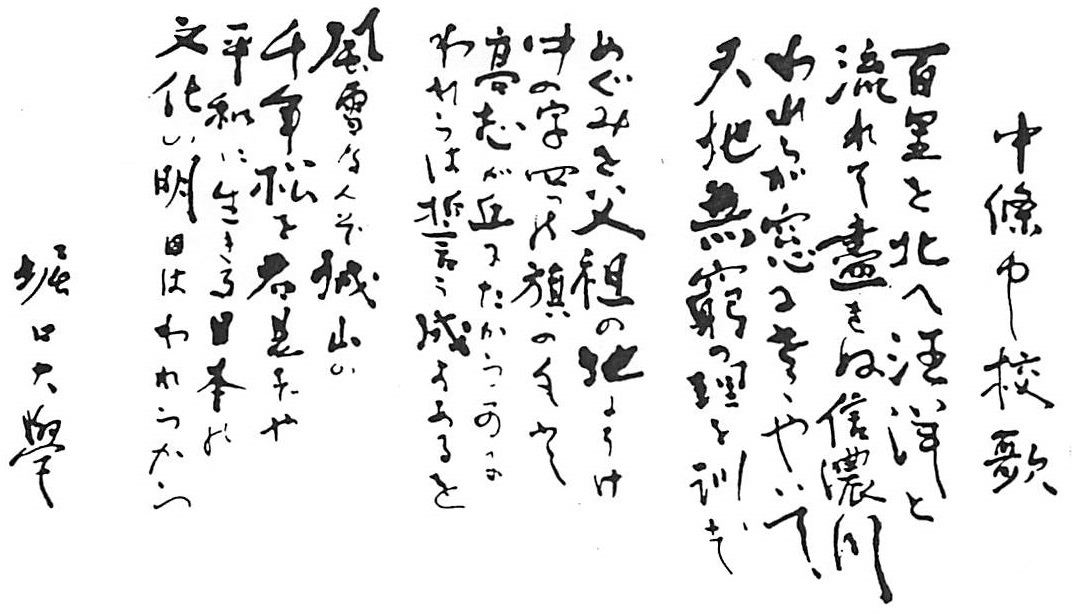 中條中校歌
百里を北へ汪洋と
流れて盡きぬ信濃川
われらが窓にさゝやいて、
天地無窮の理を訓ふ
めぐみをハ父祖の地にうけ
中の字四つの旗のもと
高志が丘にたからかに
われらは誓う成すあるを
風雪なんぞ城山の
千年松を君見ずや
平和に生きる日本の
文化の明日はわれらから
堀口大學